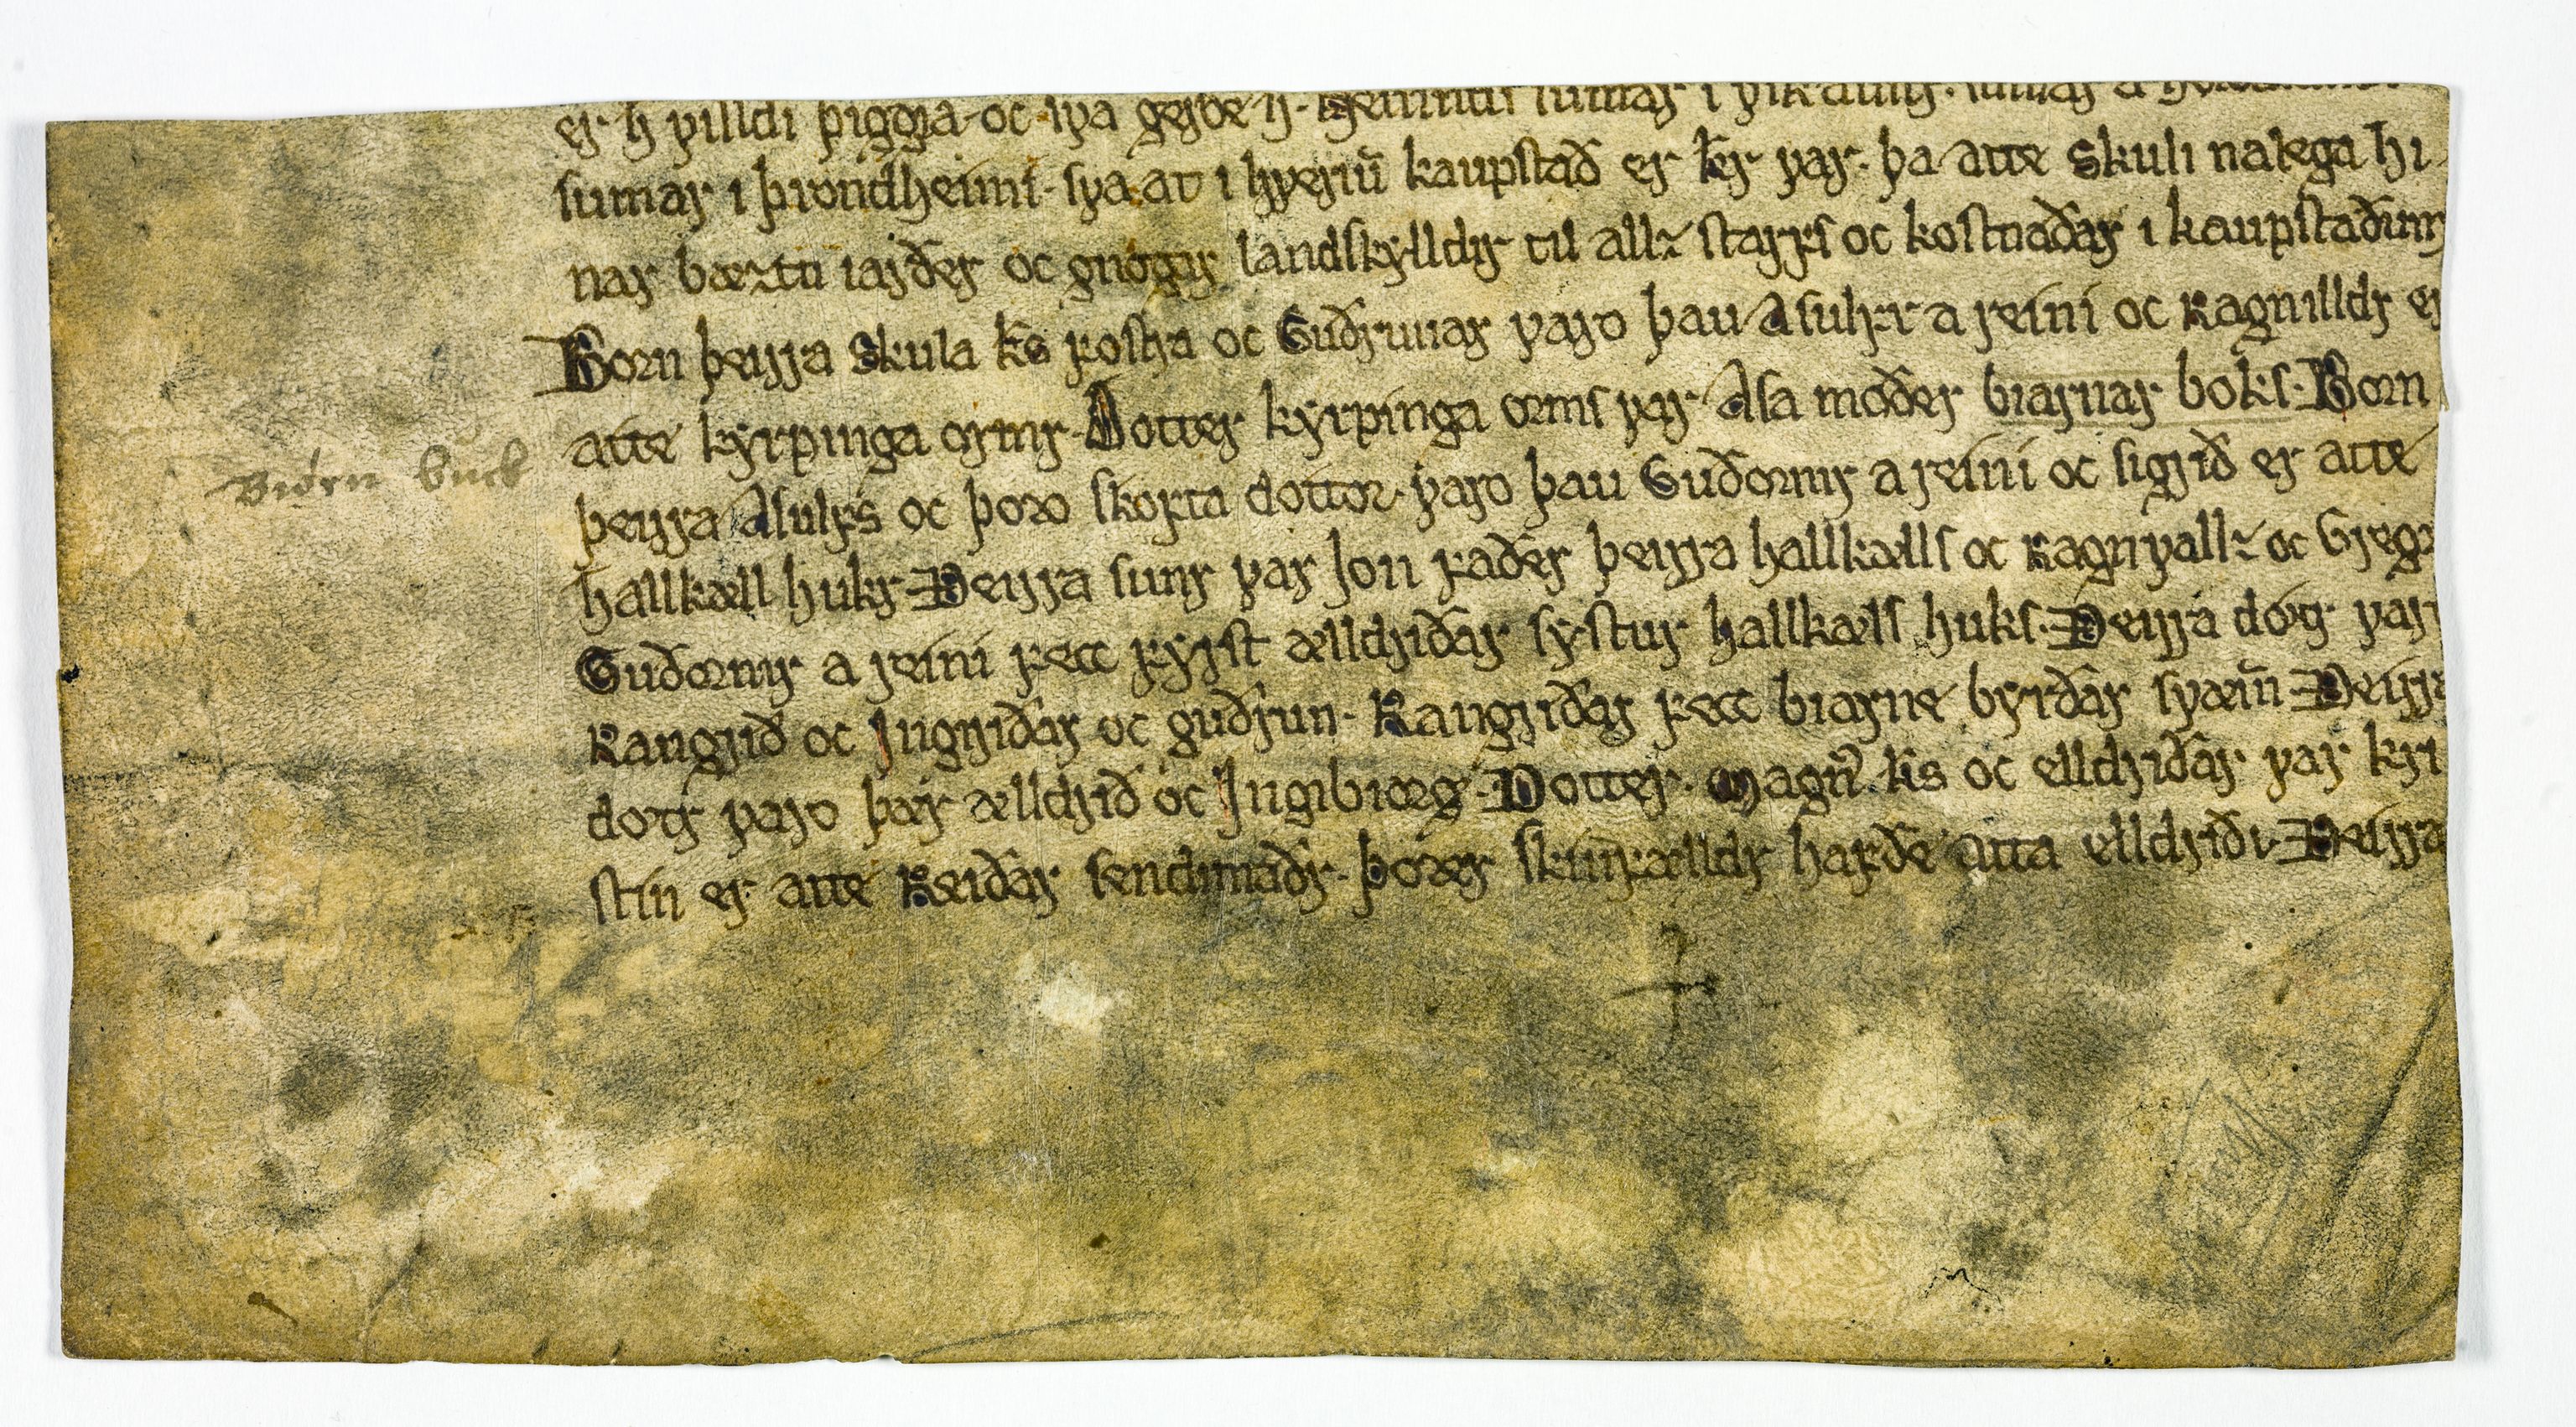 er h villdi þiggia oc sva gerðe h. Heimtti sumar i vik austr. sumar a
sumar i þrondheimi. sva at i hveriū kaupstað er kr̄ var. þa atte Skuli nalega hi
nar bæztu iarðer oc gnogar landskylldir til allz starfs oc kostnaðar i kaupstaðum
Born þeirra Skula kō fostra oc Guðrunar varo þau Asulfr a reini oc Ragnilldr er
atte kyrpinga ormr. Dotter kyrpinga orms var Asa moðer biarnar boks. Born
Biørn buck
þeirra Asulfs oc þoro skofta dottor. varo þau Guðormr a reini oc sigrið er atte
hallkæll hukr. Þeirra sunr var Jon faðer þeirra hallkæls oc Ragnvallz oc Gregor
Guðormr a reini fecc fyrst ælldriðar systur hallkæls huks. Þeirra dotr var
Rangrið oc Jngiriðar oc guðrun. Rangriðar fecc biarne byrðar svæin. Þeirra
dotr varo þær ælldrið oc Jngibiorg. Dotter. Magn̄ kīs oc elldriðar var kri
stin er atte Reiðar sendimaðr. þorer skinfælldr hafðe atta elldriði. Þeirra